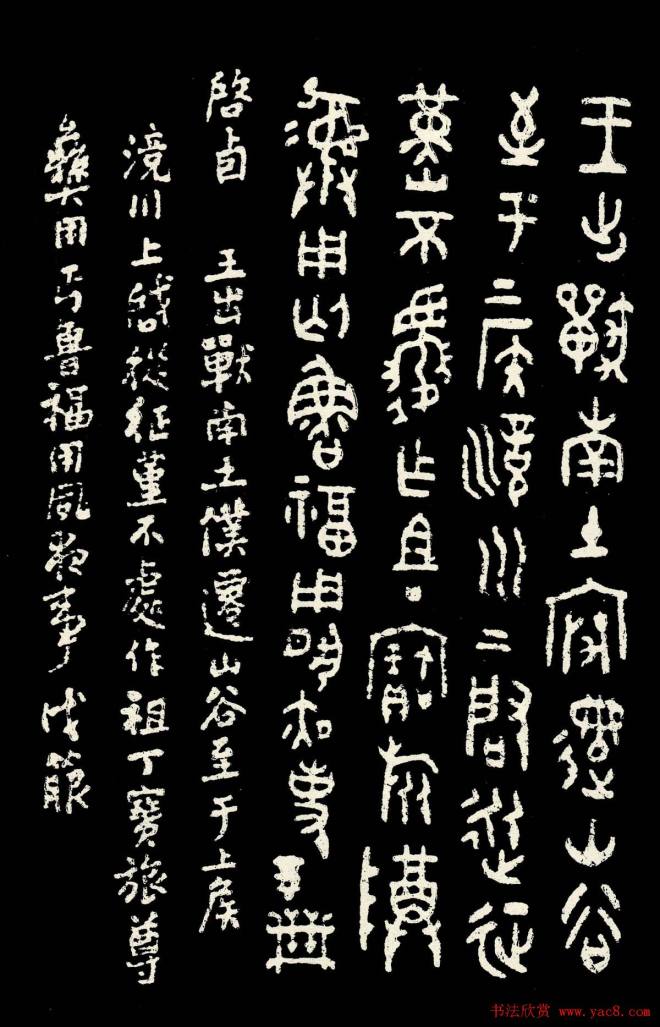 王出獸南土山谷
至于上侯滰川上啓從征
堇不作且丁寶旅尊
彝用匄魯福用夙夜事
啓卣 王出戰南土僕遷山谷至于上侯
滰川上啓從征堇不處作祖丁寶旅尊
彝用丐魯福用夙夜事 戊箙
书法欣赏 www.yac8.com